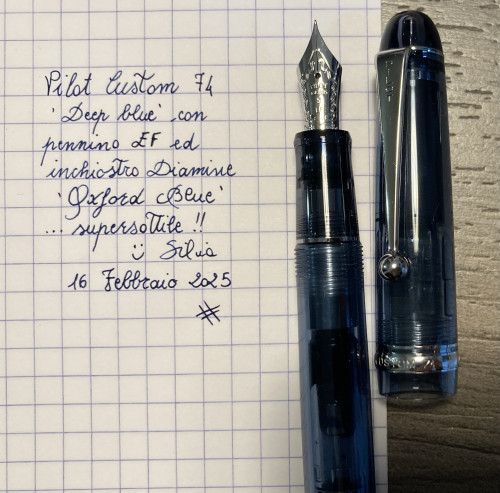 Pilot Custom 74
'Deep blue' con
pennino EF ed
inchiostro Diamine
'Oxford Blue'
... supersottile !!
Silvia
16 Febbraio 2025
PILOT
CUSTOM 74